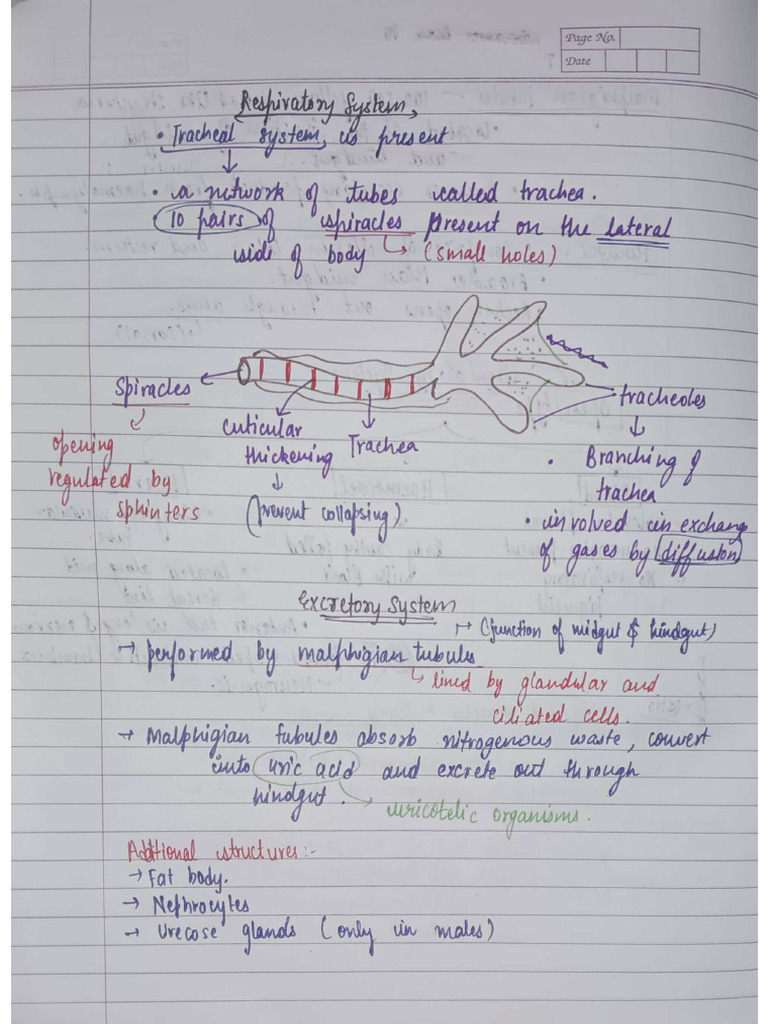 Page No.
Date
Respiratory System,
• Tracheal system, is present
• a network of tubes called trachea.
• 10 pairs of spiracles present on the lateral
side of body (small holes)
Spiracles
opening
regulated by
sphinters
Cuticular
thickening
(prevent collapsing)
Trachea
tracheoles
• Branching of
trachea
• involved in exchang
of gases by diffusion
Excretory System
(junction of midgut & hindgut)
→ performed by malphigian tubuls
lined by glandular and
ciliated cells.
→ Malphigian tubules absorb nitrogenous waste, convert
into uric acid and excrete out through
hindgut.
uricotelic organisms.
Additional structures:-
→ Fat body.
→ Nephrocytes
→ Urecose glands (only in males)